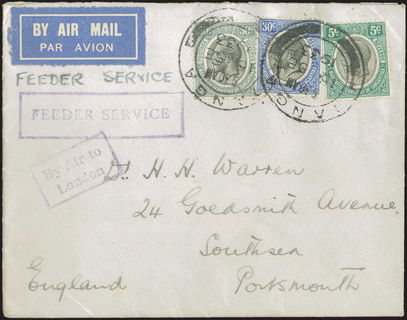 BY AIR MAIL
PAR AVION
FEEDER SERVICE
FEEDER SERVICE
By Air to
London
50c
30c
5c
TANGA
H. H. Warren
24 Goldsmith Avenue
Southsea
Portsmouth
England